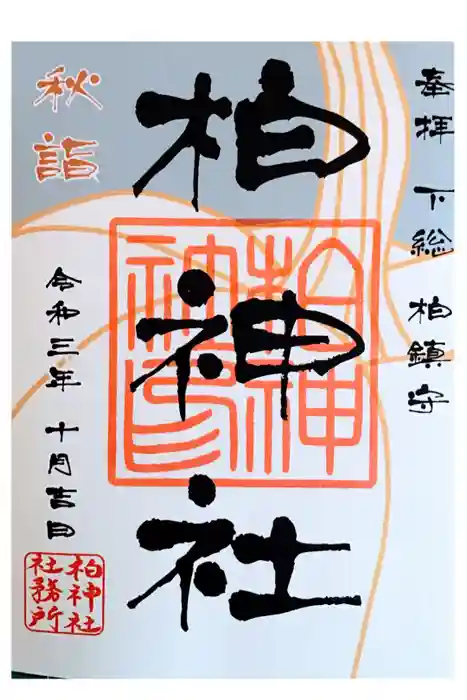 奉拝 下総 柏鎮守
柏神社
柏神社印
秋詣
令和三年 十月吉日
柏神社
社務所